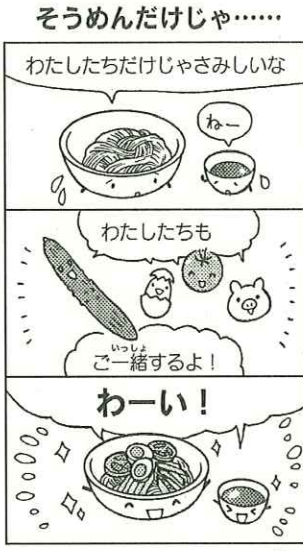 そうめんだけじゃ……
わたしたちだけじゃさみしいな
ねー
わたしたちも
ご一緒するよ!
いっしょ
わーい!